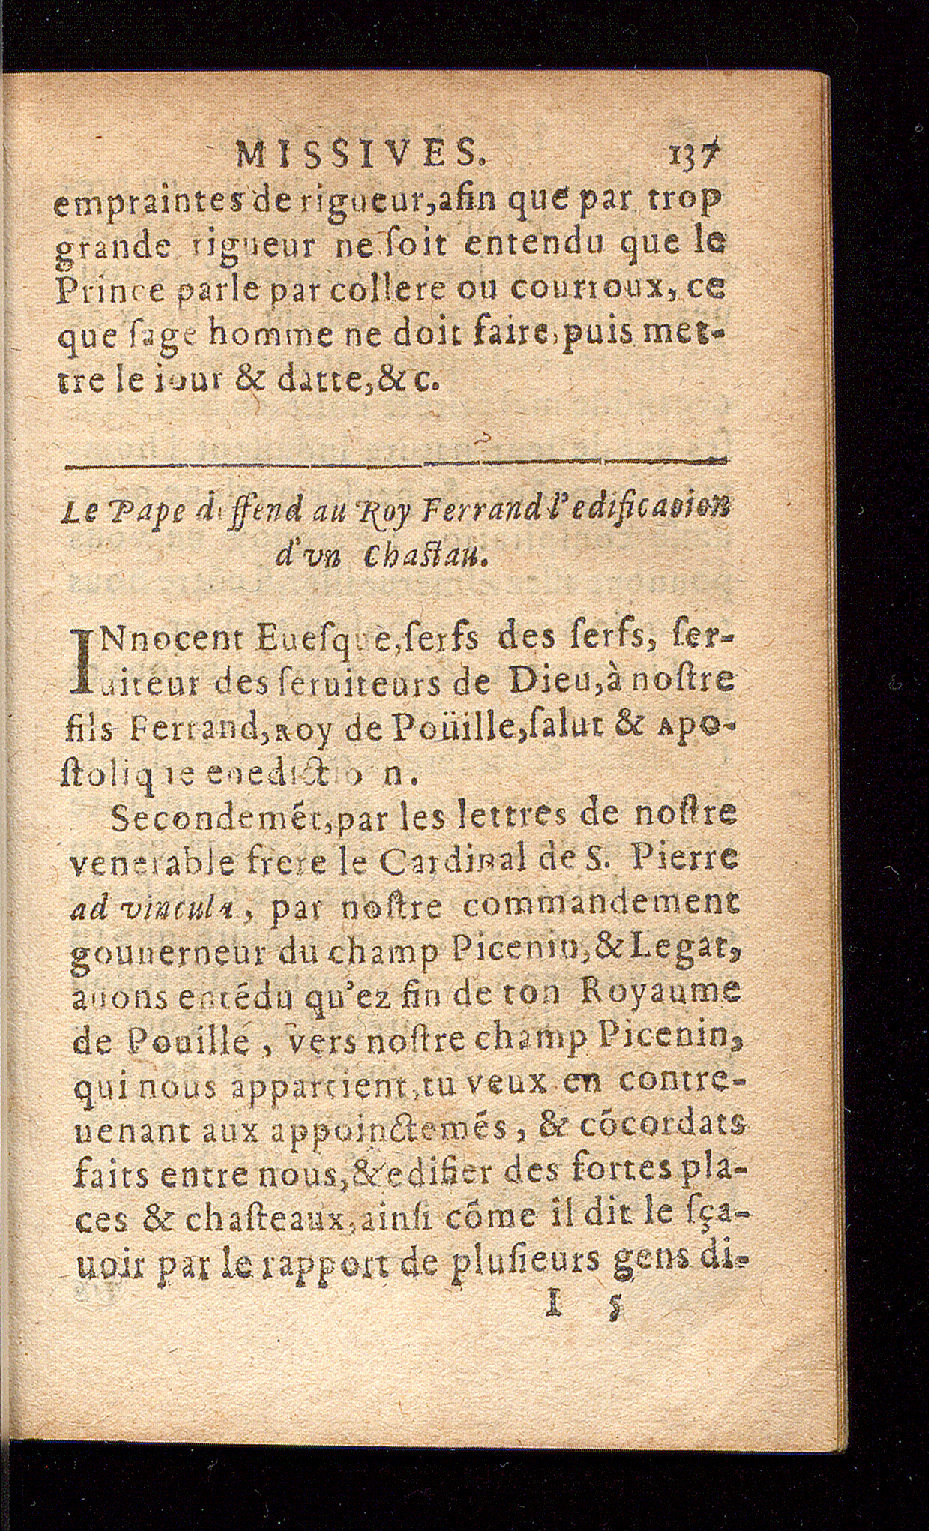 MISSIVES. 137
empraintes de rigueur, afin que par trop
grande rigueur ne ſoit entendu que le
Prince parle par collere ou courroux, ce
que ſage homme ne doit faire, puis met-
tre le iour & datte, &c.
Le Pape diffend au Roy Ferrand l'edification
d'vn Chaſtau.
INnocent Eueſque, ſerfs des ſerfs, ſer-
uiteur des ſeruiteurs de Dieu, à noſtre
fils Ferrand, Roy de Poüille, ſalut & Apo-
ſtolique enediction.
Secondemét, par les lettres de noſtre
venerable frere le Cardinal de S. Pierre
ad vincula, par noſtre commandement
gouuerneur du champ Picenin, & Legat,
auons entédu qu'ez fin de ton Royaume
de Pouille, vers noſtre champ Picenin,
qui nous appartient, tu veux en contre-
uenant aux appoinctemés, & cõcordats
faits entre nous, & edifier des fortes pla-
ces & chaſteaux, ainſi cõme il dit le ſça-
uoir par le rapport de pluſieurs gens di-
I 5